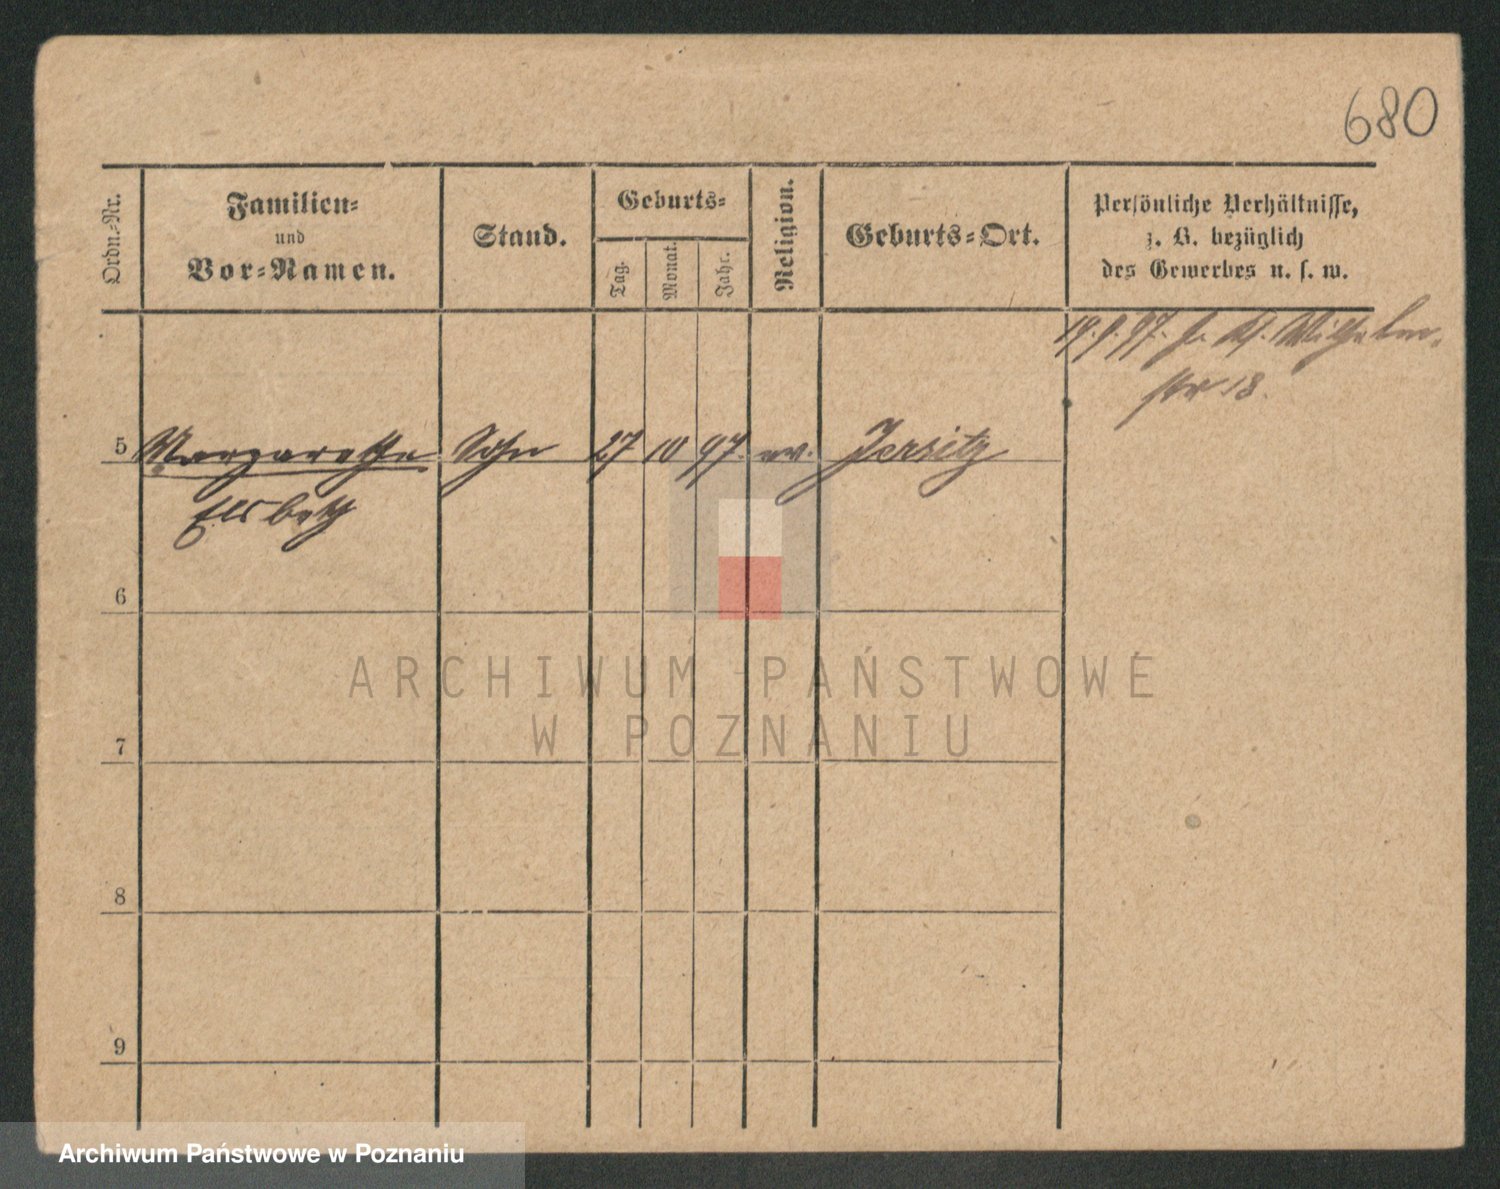 680
Ordn.-Nr.
Familien-
und
Vor-Namen.
Stand.
Geburts-
Tag.
Monat.
Jahr.
Religion.
Geburts-Ort.
Persönliche Verhältnisse,
z. B. bezüglich
des Gewerbes u. s. w.
Wilhelm-
str 18.
5 Margarethe 27 10 97. ev. Jersitz
Elsbeth
6
7
8
9
ARCHIWUM PAŃSTWOWE
W POZNANIU
Archiwum Państwowe w Poznaniu